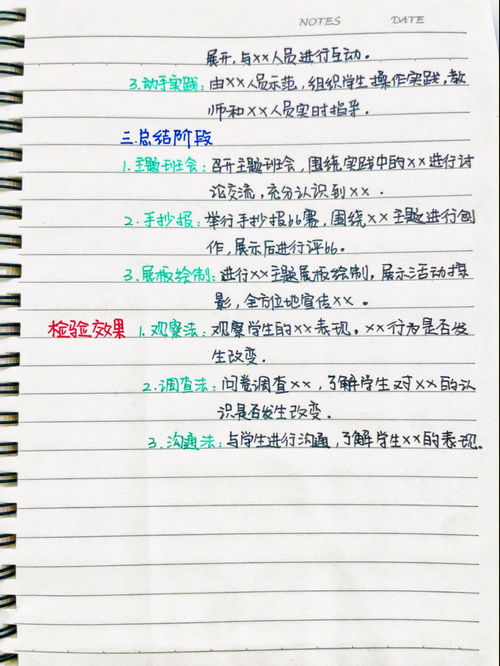 NOTES DATE
展开,与××人员进行互动。
3.动手实践:由××人员示范,组织学生操作实践,教
师和××人员实时指导。
三.总结阶段
1.主题班会:召开主题班会,围绕实践中的××进行讨
论交流,充分认识到××.
2.手抄报:举行手抄报比赛,围绕××主题进行创
作,展示后进行评比。
3.展板绘制:进行××主题展板绘制,展示活动摄
影,全方位地宣传××。
检验效果 1.观察法:观察学生的××表现,××行为是否发
生改变.
2.调查法:问卷调查××,了解学生对××的认
识是否发生改变.
3.沟通法:与学生进行沟通,了解学生××的表现.